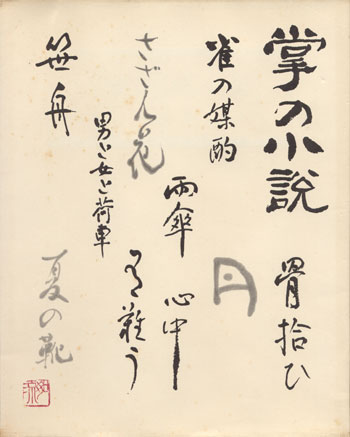 掌の小説
骨拾ひ
雀の媒酌
月
心中
雨傘
有難う
さざん花
男と女と荷車
笹舟
夏の靴